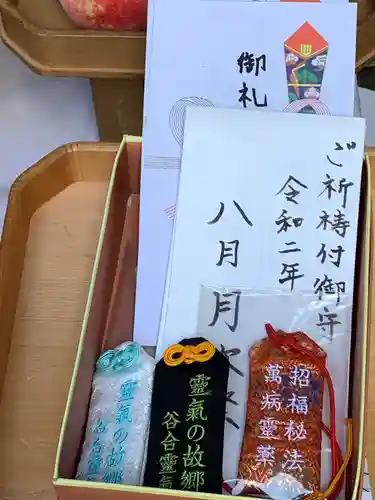 御札
ご祈祷付御守
令和二年
八月月次祭
靈氣の故郷
谷合靈
靈氣の故郷
谷合靈
招福秘法
萬病靈薬